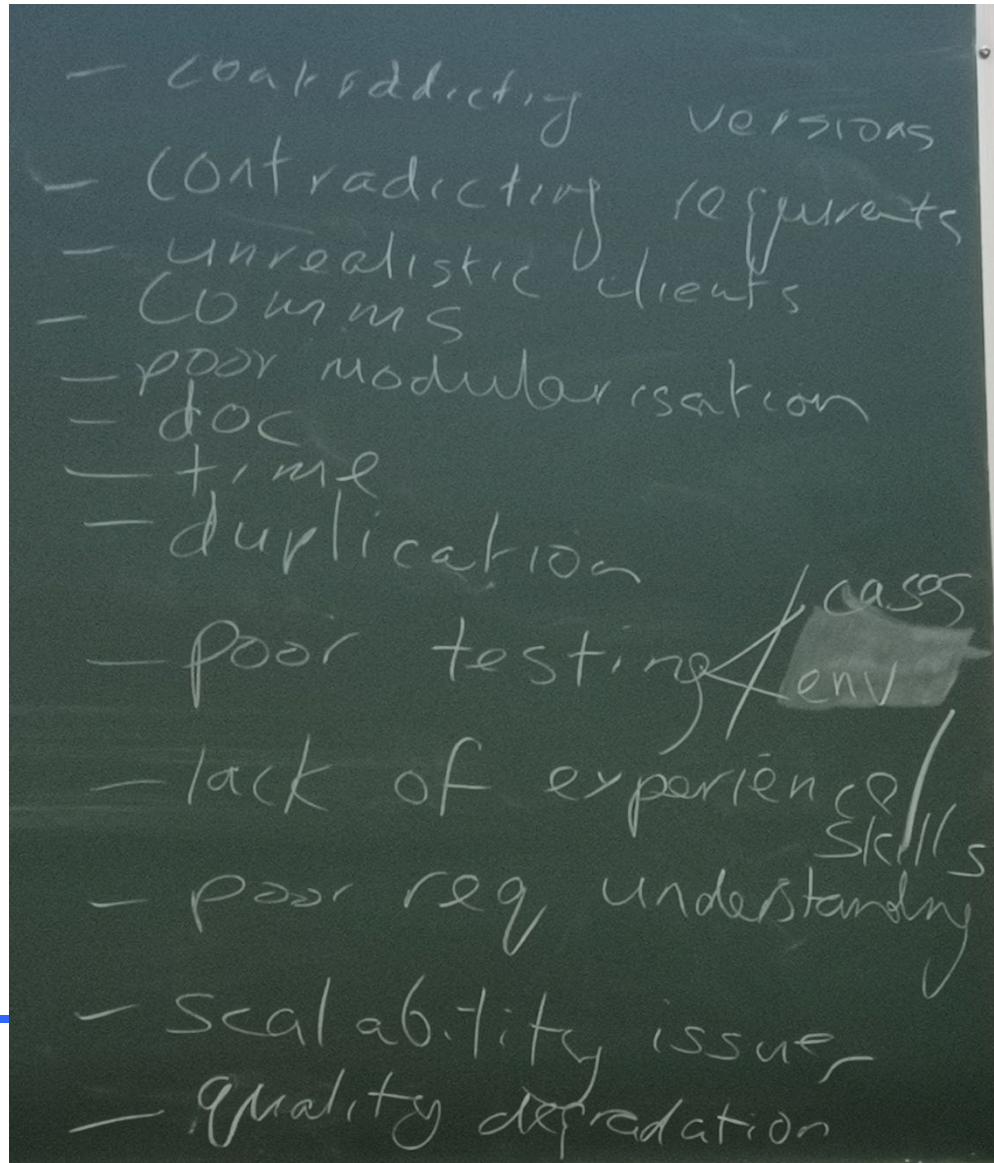 - contraddicting versions
- contradicting requirents
- unrealistic clients
- Comms
- poor modularisation
- doc
- time
- duplication
- poor testing < / cases
env
- lack of experience /
skills
- poor req understanding
- scalability issues
- quality degradation